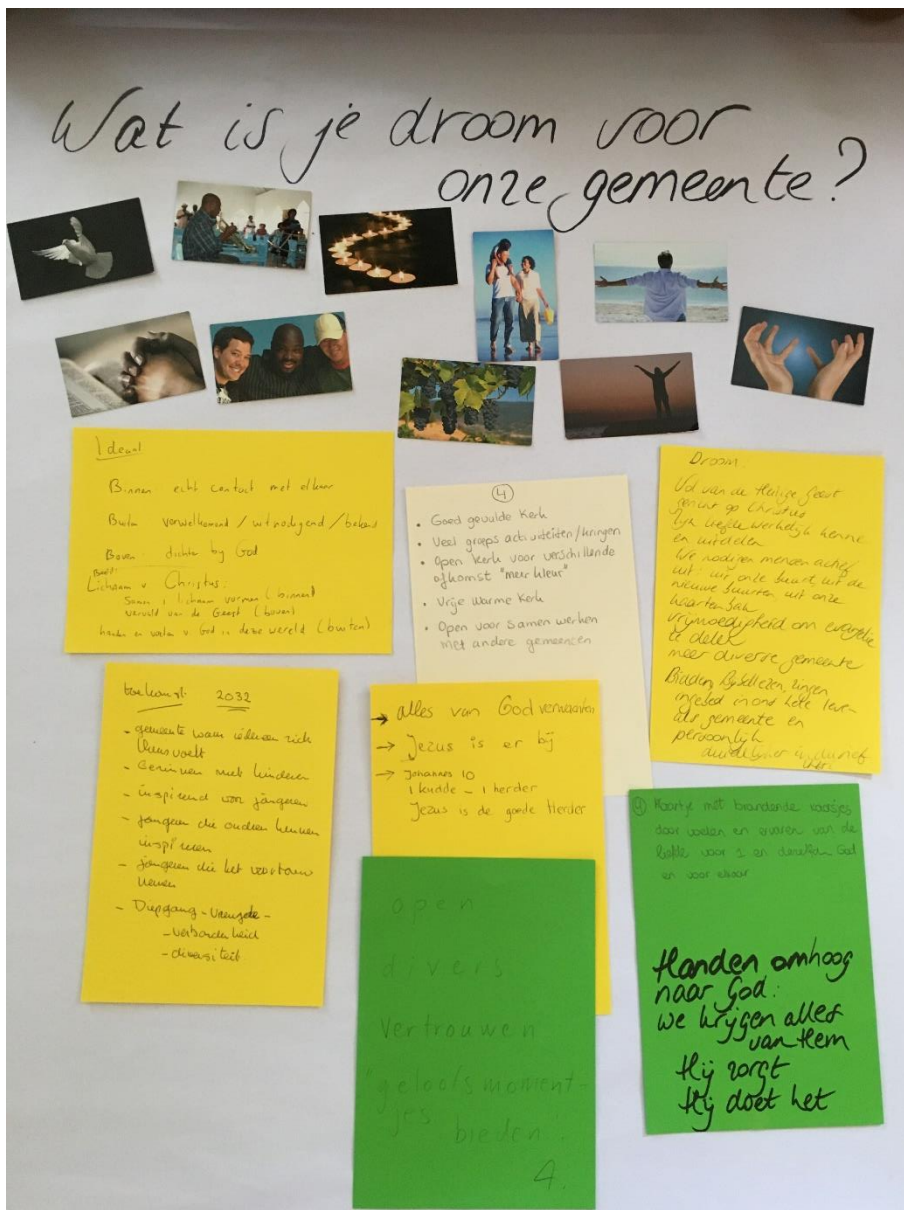 Wat is je droom voor
onze gemeente?
Ideaal
Binnen: echt contact met elkaar
Buiten verwelkomend / uitnodigend /
Boven: dichter by God
Lichaam v Christus:
Samen 1 lichaam vormen (binnen)
vervuld van de Geest (boven)
handen en voeten v God in deze wereld (buiten)
④
• Goed gevulde Kerk
• Veel groeps activiteiten/kringen
• Open kerk voor verschillende
afkomst "meer kleur"
• Vrije warme Kerk
• Open voor samen werken
met andere gemeenten
Droom:
Vol van de Heilige Geest
gericht op Christus
liefde werkelijk kennen
en uitdelen
We nodigen mensen actief
uit: uit onze buurt, uit de
nieuwe buurten uit onze
vrijmoedigheid om evangelie
te delen
meer diverse gemeente
Bidden, Bijbellezen, zingen
ingebed in ons hele leven
als gemeente en
persoonlijk
toekomst 2032
- gemeente waar iedereen zich
thuis voelt
- Gezinnen met kinderen
- inspirerend voor jongeren
- jongeren die anderen kunnen
inspireren
- jongeren die het
nemen
- Diepgang - vreugde -
- verbondenheid
- diversiteit
→ alles van God verwachten
→ Jezus is er bij
→ Johannes 10
1 kudde - 1 herder
Jezus is de goede Herder
④ Kaartje met brandende kaarsjes
daar voelen en ervaren van de
liefde voor 1 en dezelfde God
en voor elkaar
Handen omhoog
naar God:
We krijgen alles
van Hem
Hij zorgt
Hij doet het
open
divers
vertrouwen
"geloofsmoment-
jes bieden"
4.